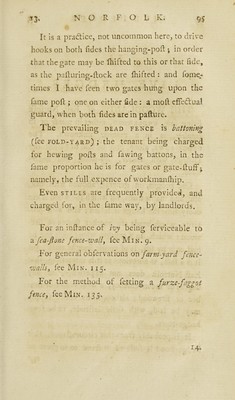 13. NORFOLK. 95
It is a practice, not uncommon here, to drive
hooks on both sides the hanging-post; in order
that the gate may be shifted to this or that side,
as the pasturing-stock are shifted: and some-
times I have seen two gates hung upon the
same post; one on either side: a most effectual
guard, when both sides are in pasture.
The prevailing DEAD FENCE is battening
(see FOLD-YARD); the tenant being charged
for hewing posts and sawing battons, in the
same proportion he is for gates or gate-stuff;
namely, the full expence of workmanship.
Even STILES are frequently provided, and
charged for, in the same way, by landlords.
For an instance of ivy being serviceable to
a sea-stone fence-wall, see MIN. 9.
For general observations on farm-yard fence-
walls, see MIN. 115.
For the method of setting a furze-faggot
fence, see MIN. 135.
14.